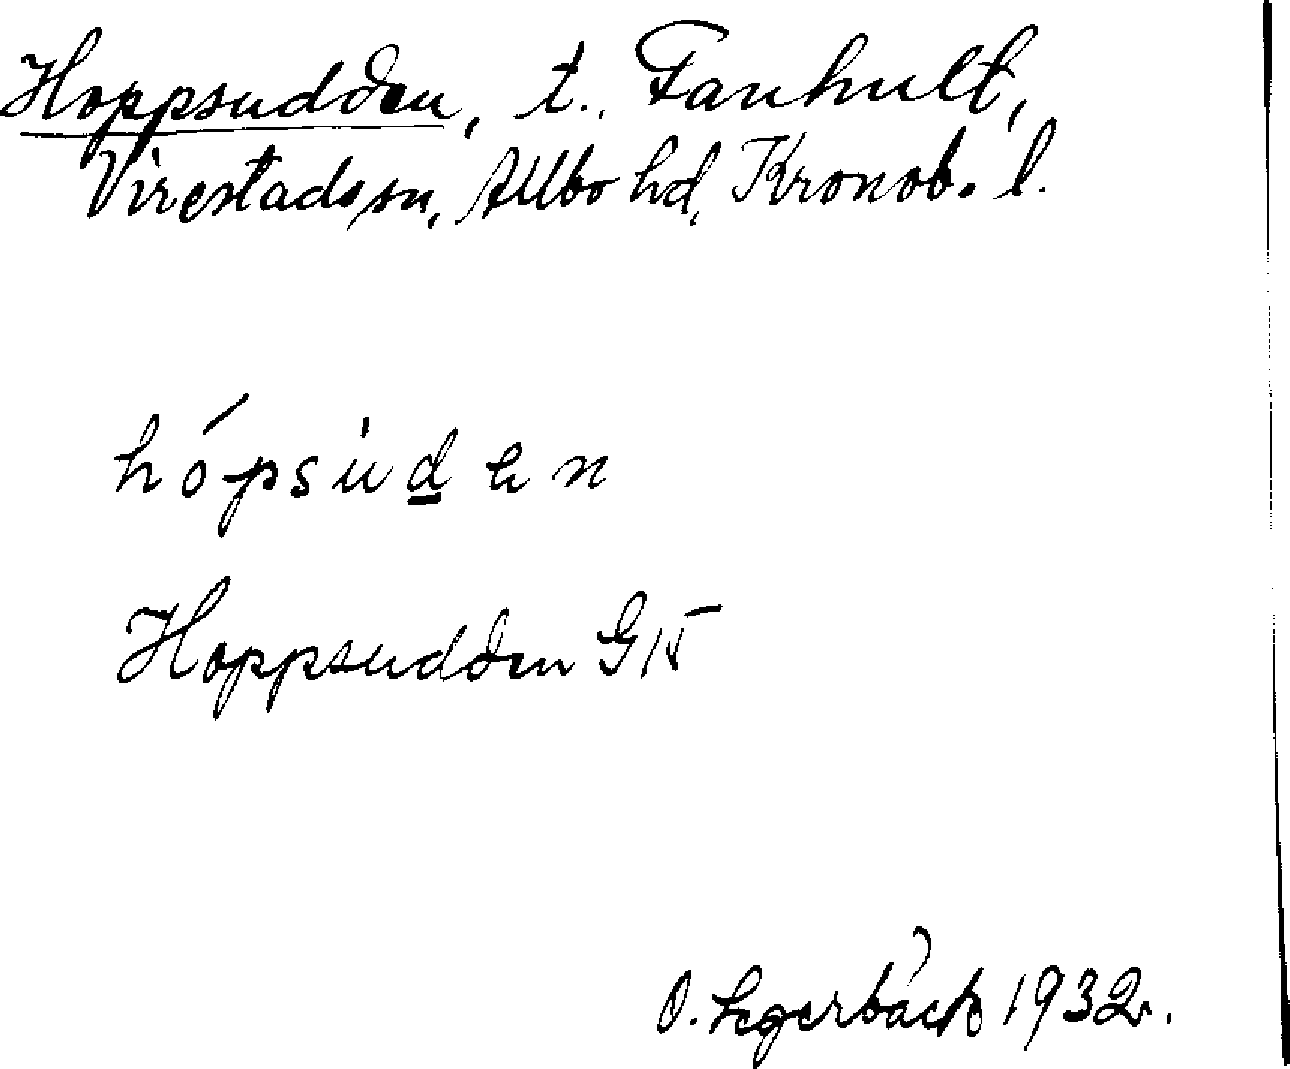 Hoppsudden, t. Fanhult,
Virestads sn, Allbo hd, Kronob. l.
hópsùden
Hoppsudden G15
O. Segerbäck 1932.